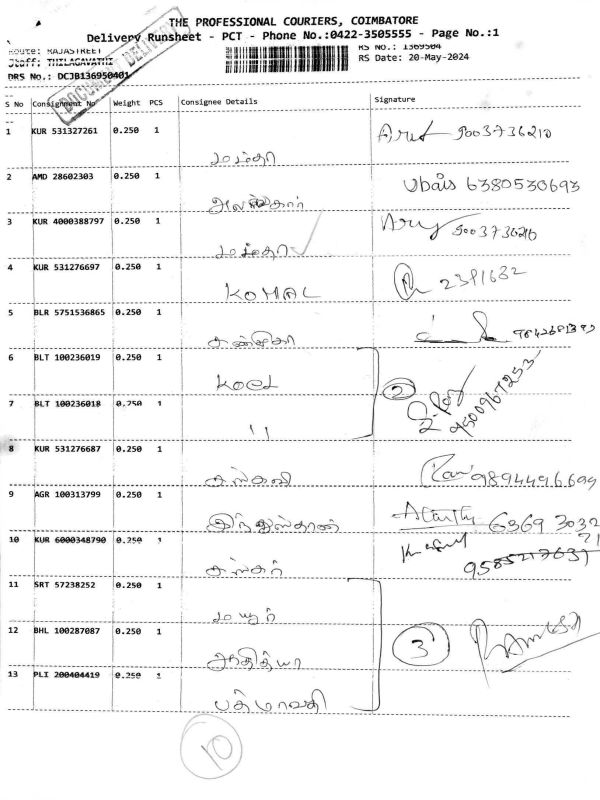 THE PROFESSIONAL COURIERS, COIMBATORE
Delivery Runsheet - PCT - Phone No.:0422-3505555 - Page No.:1
Route: RAJASTREET RS No.: 1369504
Staff: THILAGAVATHI RS Date: 20-May-2024
DRS No.: DCJB136950401
DOCUMENT DELIVERY
S No Consignment No Weight PCS Consignee Details Signature
1 KUR 531327261 0.250 1 மம்தா 9003736210
2 AMD 28602303 0.250 1 அலங்கார் Ubais 6380530693
3 KUR 4000388797 0.250 1 மம்தா 9003736210
4 KUR 531276697 0.250 1 KOMAL 2391632
5 BLR 5751536865 0.250 1
6 BLT 100236019 0.250 1
7 BLT 100236018 0.250 1 11
2
9500967253
8 KUR 531276687 0.250 1 9894496699
9 AGR 100313799 0.250 1 இந்துஸ்தான் 6369 3032
71
10 KUR 6000348790 0.250 1 9585217637
11 SRT 57238252 0.250 1 மயூர்
12 BHL 100287087 0.250 1 ஆதித்யா
3
13 PLI 200404419 0.250 1 பத்மாவதி
10